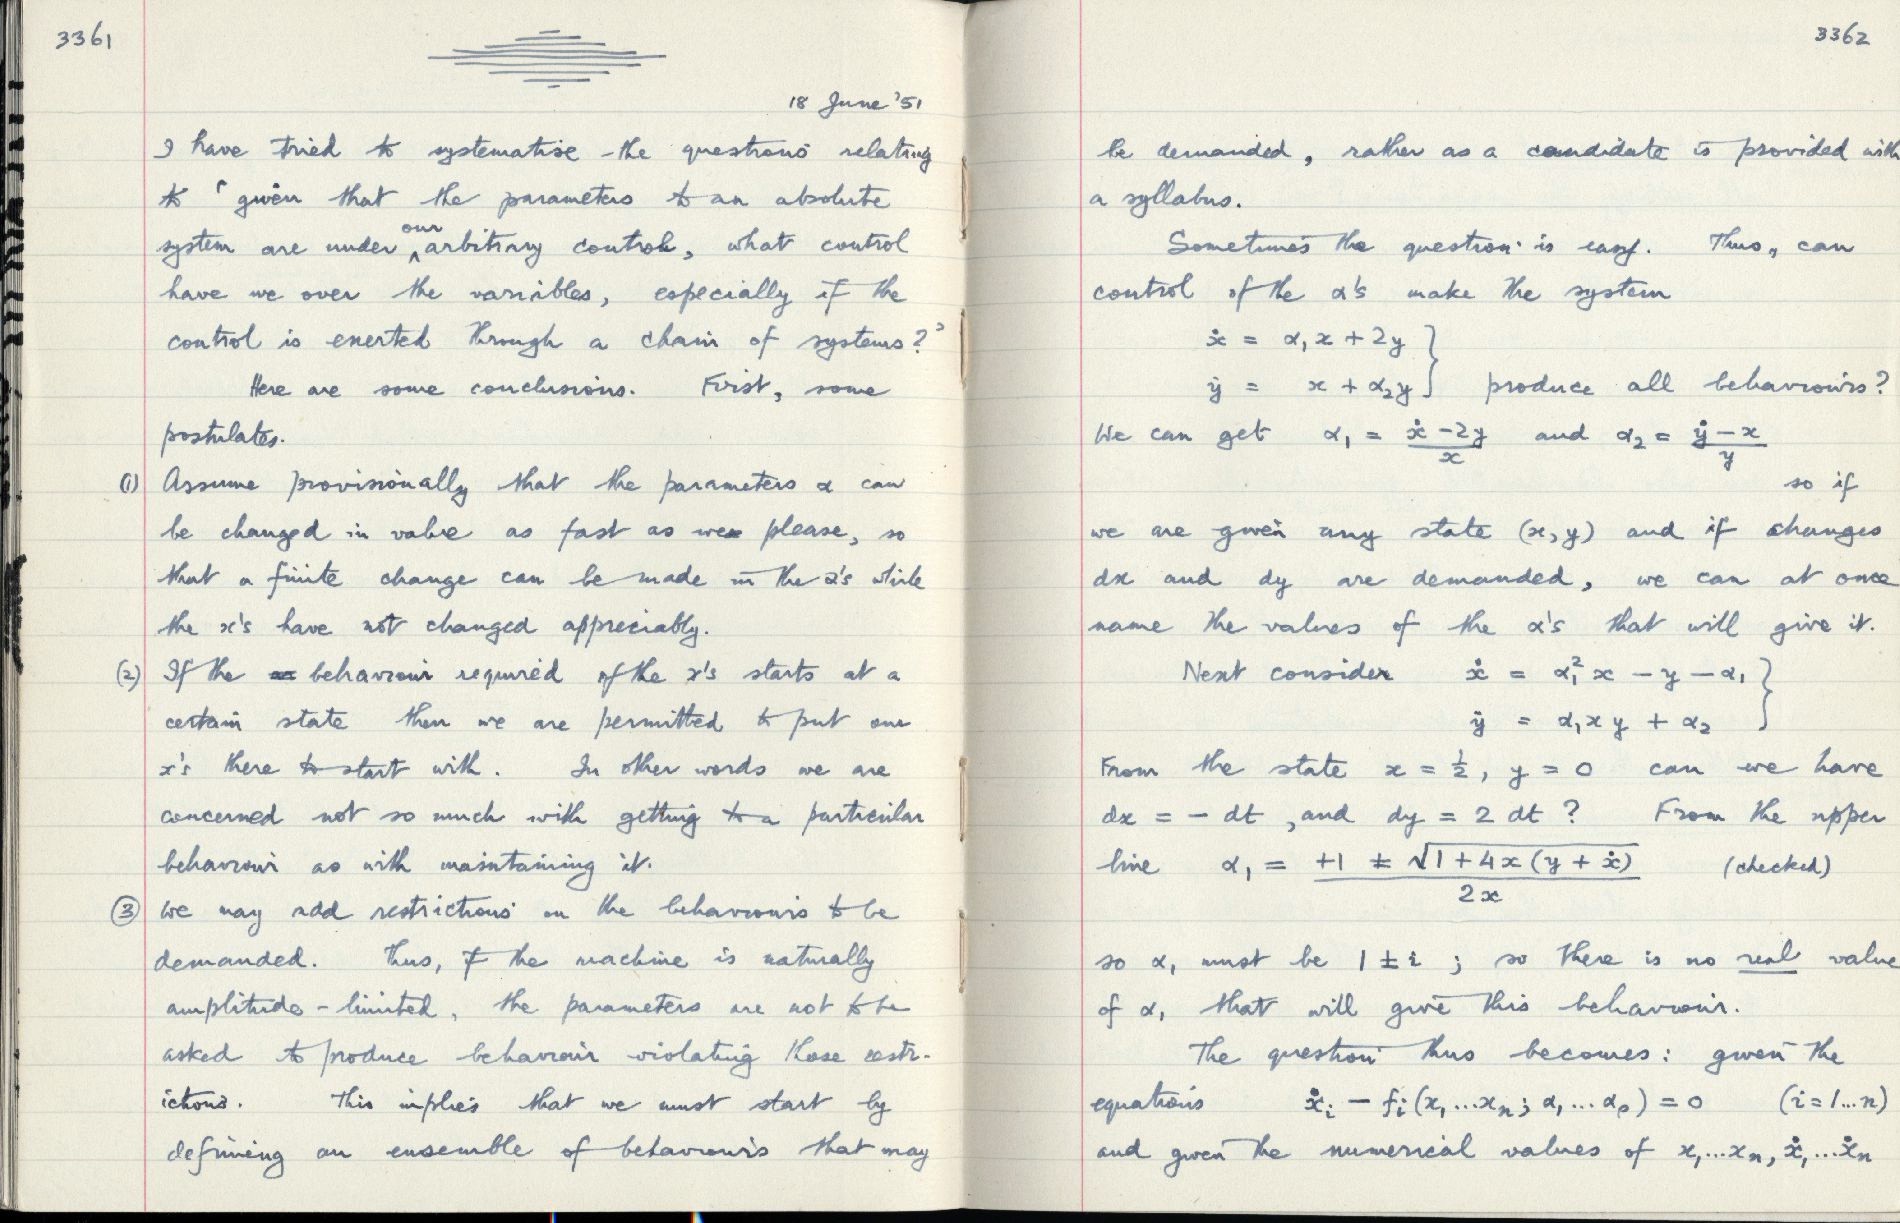 3361
18 June '51
I have tried to systematise the questions relating
to 'given that the parameters to an absolute
system are under our arbitrary control, what control
have we over the variables, especially if the
control is exerted through a chain of systems?'
Here are some conclusions. First, some
postulates.
(1) Assume provisionally that the parameters α can
be changed in value as fast as we please, so
that a finite change can be made in the α's while
the x's have not changed appreciably.
(2) If the behaviour required of the x's starts at a
certain state then we are permitted to put our
x's there to start with. In other words we are
concerned not so much with getting to a particular
behaviour as with maintaining it.
(3) We may add restrictions on the behaviours to be
demanded. Thus, if the machine is naturally
amplitude-limited, the parameters are not to be
asked to produce behaviour violating those restr-
ictions. This implies that we must start by
defining an ensemble of behaviours that may
3362
be demanded, rather as a candidate is provided with
a syllabus.
Sometimes the question is easy. Thus, can
control of the α's make the system
ẋ = α₁x + 2y
ẏ = x + α₂y } produce all behaviours?
We can get α₁ = (ẋ - 2y)/x and α₂ = (ẏ - x)/y
so if
we are given any state (x, y) and if changes
dx and dy are demanded, we can at once
name the values of the α's that will give it.
Next consider ẋ = α₁²x - y - α₁
ẏ = α₁xy + α₂ }
From the state x = ½, y = 0 can we have
dx = - dt, and dy = 2 dt? From the upper
line α₁ = (+1 ± √(1 + 4x(y + ẋ)))/2x (checked)
so α₁ must be 1 ± i ; so there is no real value
of α₁ that will give this behaviour.
The question thus becomes: given the
equations ẋᵢ - fᵢ(x₁...xₙ; α₁...αₚ) = 0 (i = 1...n)
and given the numerical values of x₁...xₙ, ẋ₁...ẋₙ